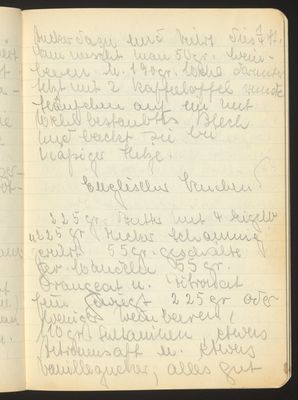 Zucker dazu und rührt dies 1/4 St.
dann mischt man 50 gr. Wein-
beeren u. 190 gr. Mehl darunter
setzt mit 2 Kaffelöffel runde
Häufchen auf ein mit
Mehl bestaubtes Blech
und backt sie bei
mässiger Hitze.
Englischer Kuchen
225 gr. Butter mit 4 Eigelb
u. 225 gr Zucker schaumig
gerührt 55 gr. geschälte
ger. Mandeln 55 gr.
Orangeat u. Zitronat
fein 225 gr oder
weniger Weinbeeren,
110 gr Sultaninen, etwas
Zitronensaft u. etwas
Vanillezucker, alles gut